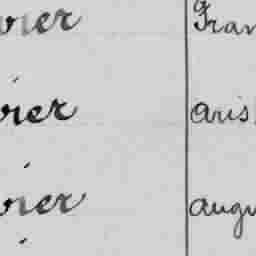 vier Fran
vier aris
vier augu